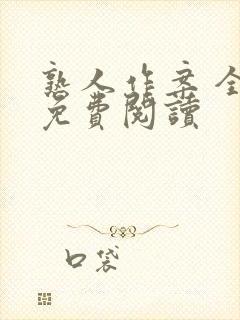 熟人作案全
免費閱讀
口袋